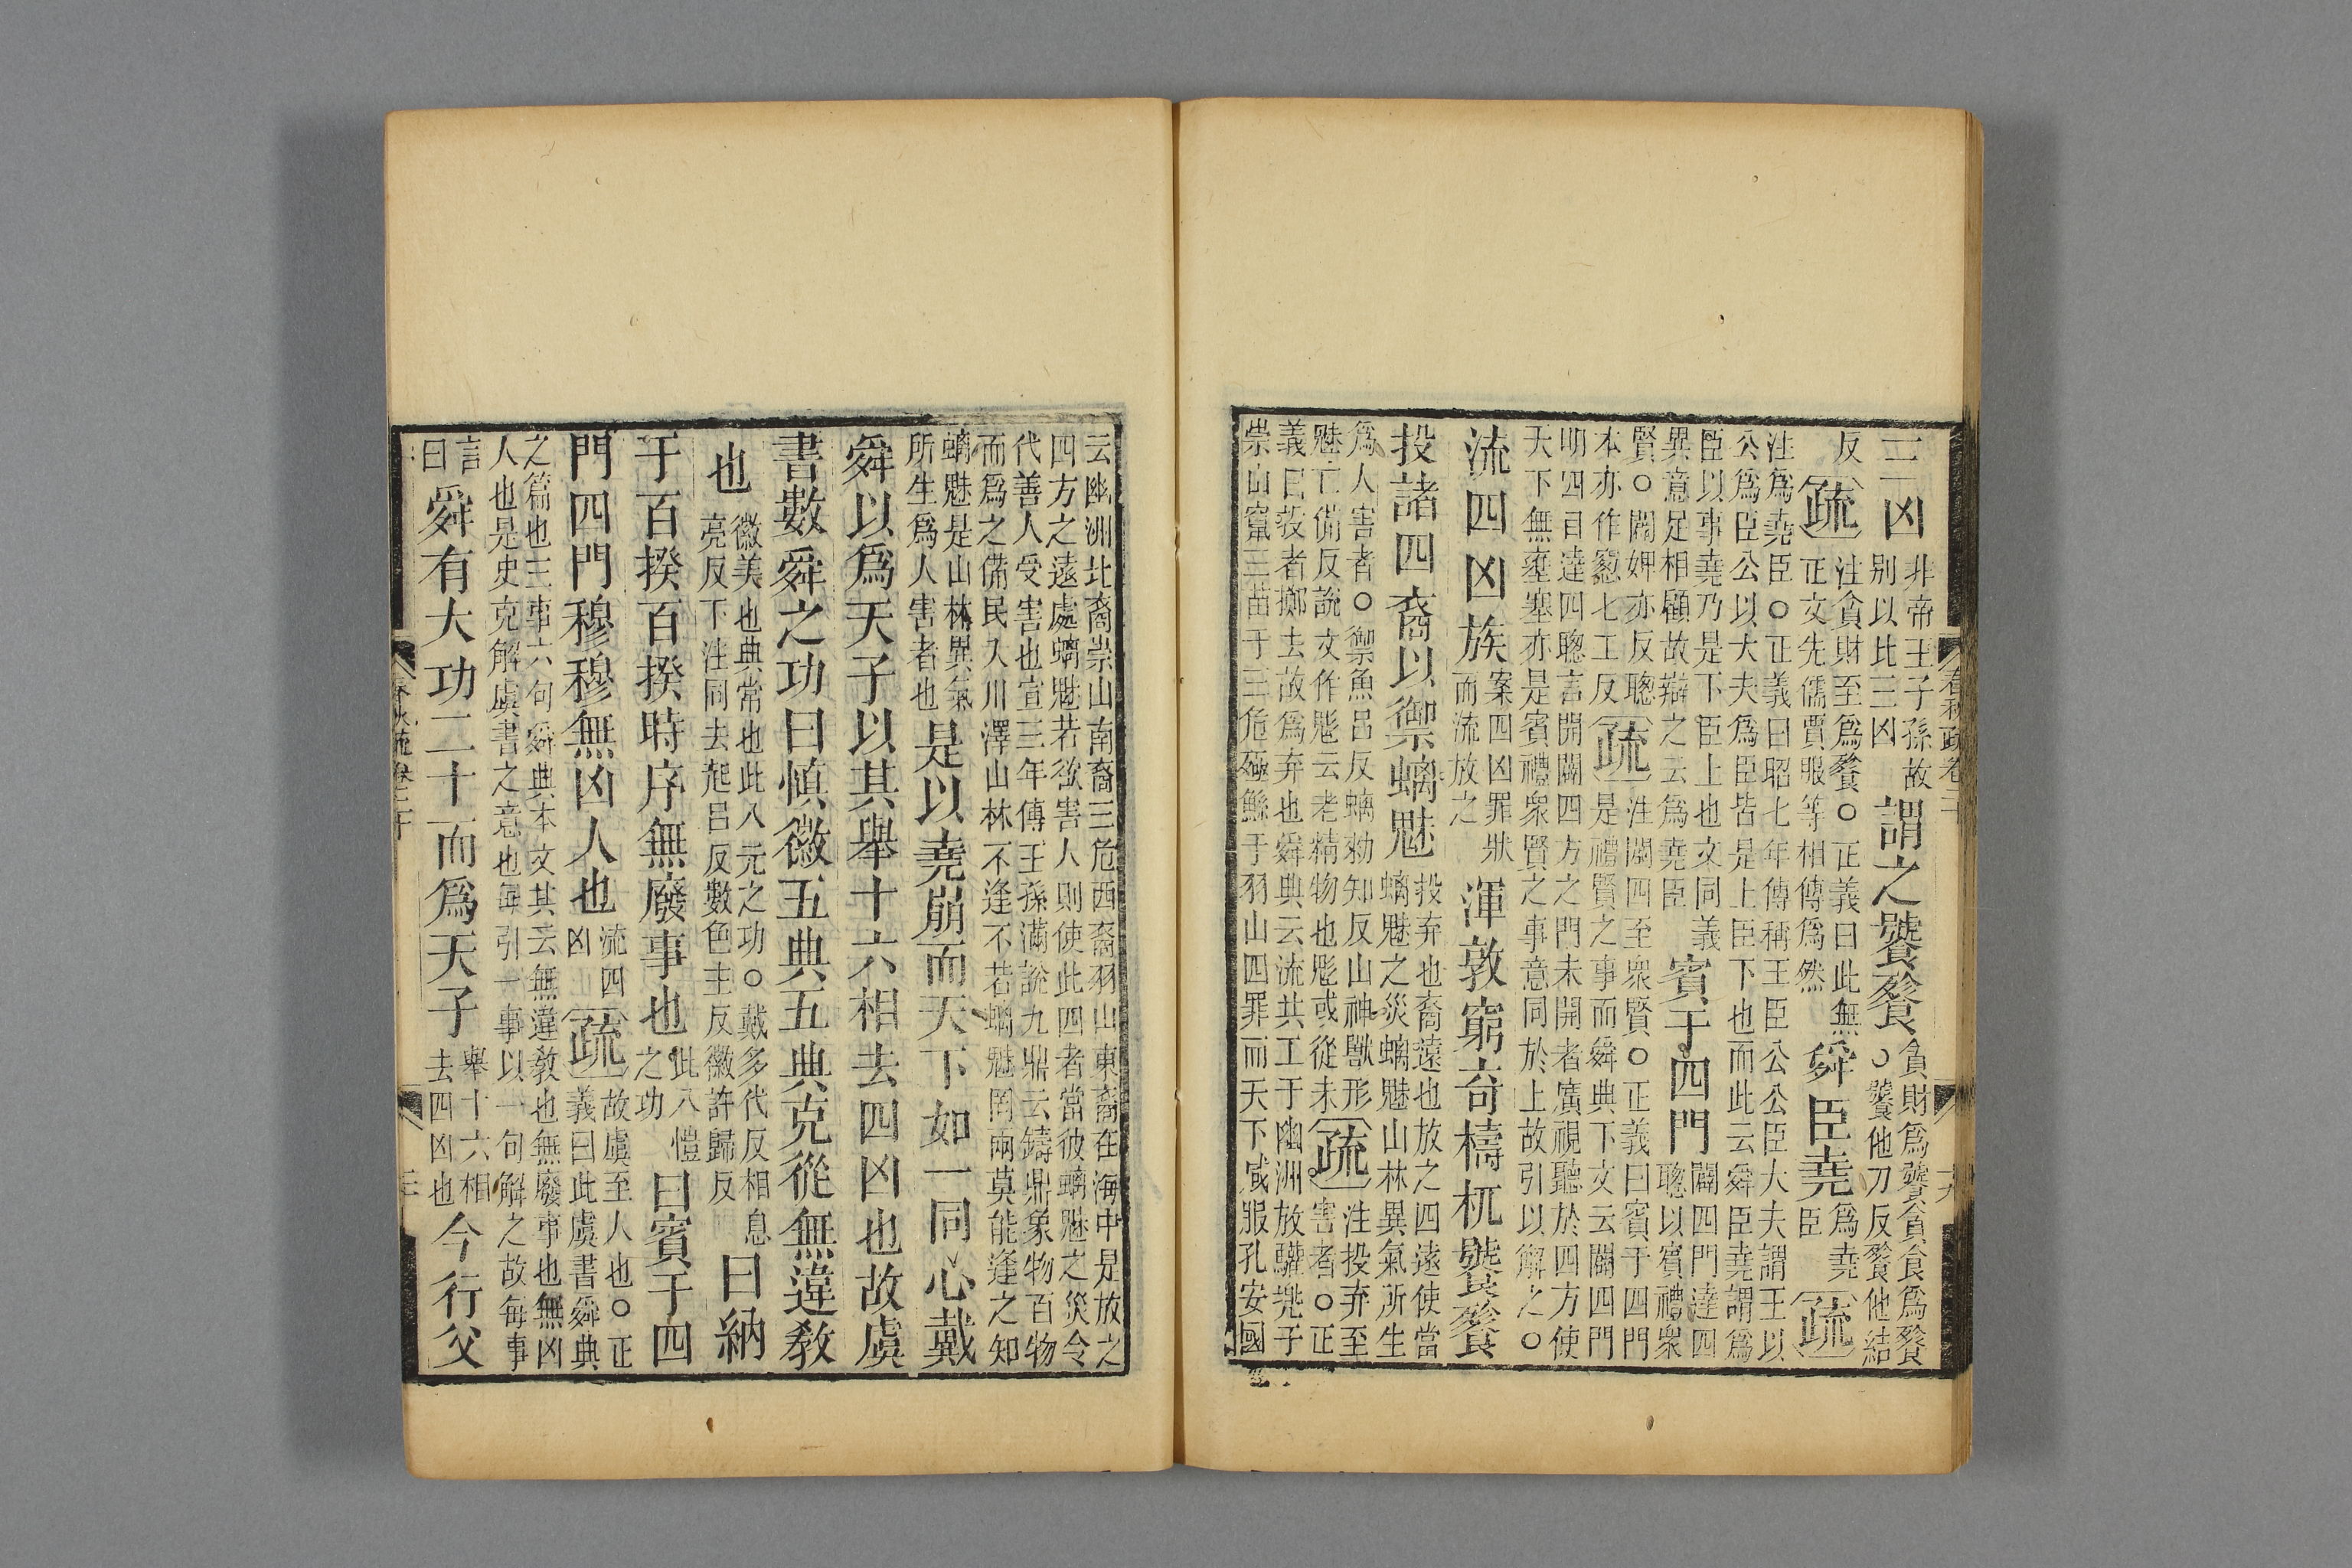 三凶非帝王子孫故
別以比三凶謂之饕餮貪財爲饕貪食爲餮
○饕他刀反餮他結
反疏注貪財至爲餮○正義曰此無
正文先儒賈服等相傳爲然舜臣堯爲堯
臣疏
注爲堯臣○正義曰昭七年傳稱王臣公公臣大夫謂王以
公爲臣公以大夫爲臣皆是上臣下也而此云舜臣堯謂爲
臣以事堯乃是下臣上也文同義
異意足相顧故辯之云爲堯臣賓于四門闢四門達四
聰以賓禮衆
賢○闢婢亦反聰
本亦作窻七工反疏注闢四至衆賢○正義曰賓于四門
是禮賢之事而舜典下文云闢四門
明四目達四聰言開闢四方之門未開者廣視聽於四方使
天下無壅塞亦是賓禮衆賢之事意同於上故引以解之○
流四凶族案四凶罪狀
而流放之渾敦窮奇檮杌饕餮
投諸四裔以禦螭魅投弃也裔遠也放之四遠使當
螭魅之災螭魅山林異氣所生
爲人害者○禦魚呂反螭勑知反山神獸形
魅亡備反說文作鬽云老精物也鬽或從未疏注投弃至
害者○正
義曰投者擲去故爲弃也舜典云流共工于幽洲放驩兜于
崇山竄三苗于三危殛鯀于羽山四罪而天下咸服孔安國
春秋疏卷二十
十九
云幽洲北裔崇山南裔三危西裔羽山東裔在海中是放之
四方之遠處螭魅若欲害人則使此四者當彼螭魅之災令
代善人受害也宣三年傳王孫滿說九鼎云鑄鼎象物百物
而爲之備民入川澤山林不逢不若螭魅罔兩莫能逢之知
螭魅是山林異氣
所生爲人害者也是以堯崩而天下如一同心戴
舜以爲天子以其舉十六相去四凶也故虞
書數舜之功曰愼徽五典五典克從無違敎
也徽美也典常也此八元之功○戴多代反相息
亮反下注同去起呂反數色主反徽許歸反曰納
于百揆百揆時序無廢事也此八愷
之功曰賓于四
門四門穆穆無凶人也流四
凶疏故虞至人也○正
義曰此虞書舜典
之篇也三事六句舜典本文其云無違敎也無廢事也無凶
人也是史克解虞書之意也每引一事以一句解之故每事
言
曰舜有大功二十而爲天子舉十六相
去四凶也今行父